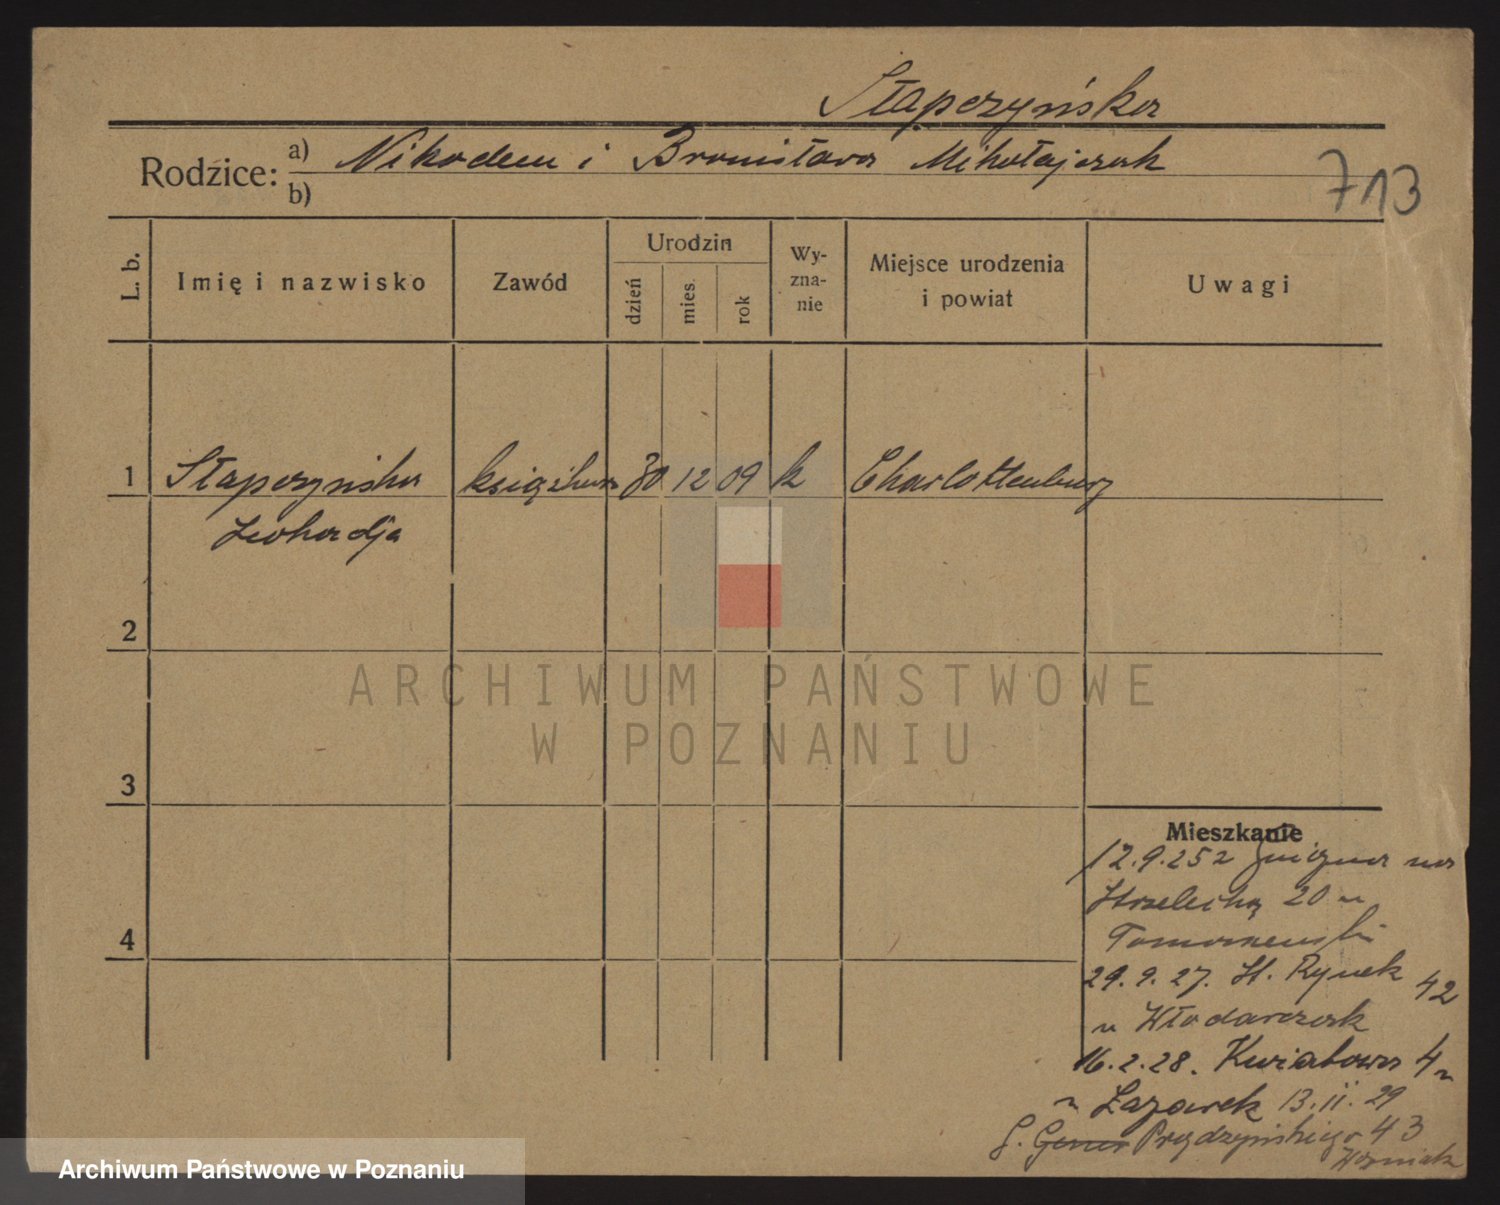 Stapczyńska
Rodzice: a) Nikodem i Bronisława Mikołajczak
b)
713
L. b.
Imię i nazwisko
Zawód
Urodzin
dzień
mies.
rok
Wy-
zna-
nie
Miejsce urodzenia
i powiat
Uwagi
1 Stapczyńska 30 12 09 k Charlottenburg
Leokadja
2
ARCHIWUM PAŃSTWOWE
W POZNANIU
3
Mieszkanie
12.9.25 na
Strzelecką 20 u
4
29.9.27. St. Rynek 42
u Włodarczak
16.2.28. Kwiatowa 4
u Łazarek 13.II.29
Prądzyńskiego 43
Woźniak
Archiwum Państwowe w Poznaniu